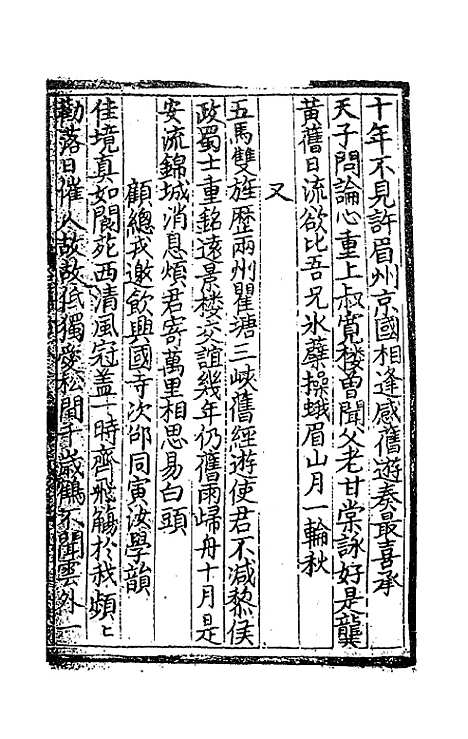 十年不見許眉州京國相逢感舊遊奏最喜承
天子問論心重上叔寛樓曽聞父老甘棠詠好是龔
黃舊日流欲比吾兄氷蘗操蛾眉山月一輪秋
又
五馬雙旌歷兩州瞿塘三峽舊經遊使君不減黎侯
政蜀士重銘遠景樓交誼幾年仍舊雨歸舟十月是
安流錦城消息煩君寄萬里相思易白頭
顧總戎邀飲興國寺次邵同寅汝學韻
佳境真如閬苑西清風冠盖一時齊飛觴於我頻〻
勸落日催人故故低獨愛松間千歲鶴不聞雲外一